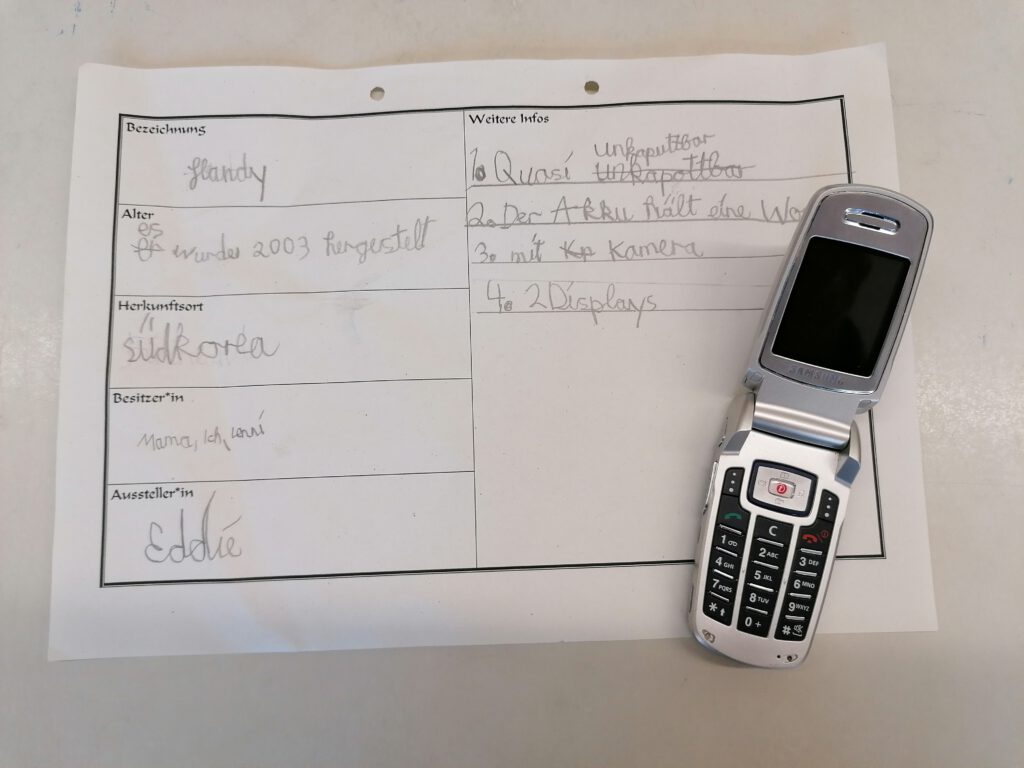 Bezeichnung
Handy
Alter
es
er wurde 2003 hergestelt
Herkunftsort
Südkorea
Besitzer*in
Mama, Ich, Lenni
Aussteller*in
Eddie
Weitere Infos
unkaputtbar
1. Quasi unkapottbar
2. Der Akku hält eine Wo
3. mit Kp Kamera
4. 2 Displays
SAMSUNG
C
1
2 ABC
3 DEF
4 GHI
5 JKL
6 MNO
7 PQRS
8 TUV
9 WXYZ
*
0 +
#